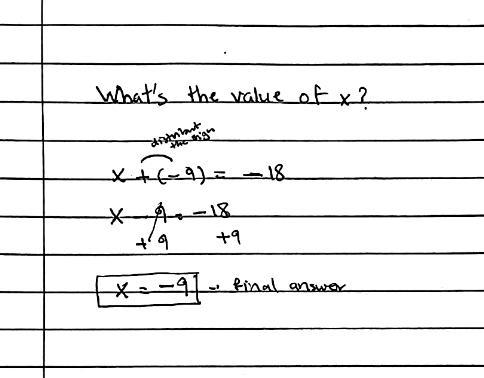 What's the value of x?
the sign
x + (-9) = -18
x - 9 = -18
+9 +9
x = -9 → final answer